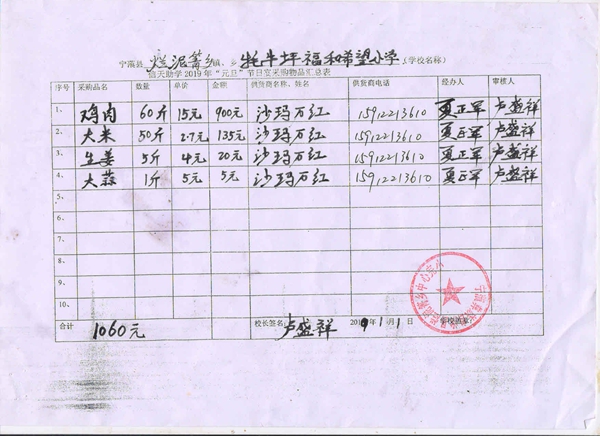 宁蒗县 烂泥箐乡镇、乡 牦牛坪福和希望小学(学校名称)
信天助学2019年“元旦”节日宴采购物品汇总表
序号 采购品名 数量 单价 金额 供货商名称、姓名 供货商电话 经办人 审核人
1、 鸡肉 60斤 15元 900元 沙玛万红 15912213610 夏正军 卢盛祥
2、 大米 50斤 2.7元 135元 沙玛万红 15912213610 夏正军 卢盛祥
3、 生姜 5斤 4元 20元 沙玛万红 15912213610 夏正军 卢盛祥
4、 大蒜 1斤 5元 5元 沙玛万红 15912213610 夏正军 卢盛祥
5、
6、
7、
8、
9、
10、
合计 1060元 校长签名: 卢盛祥 2019年1月1日 学校盖章: